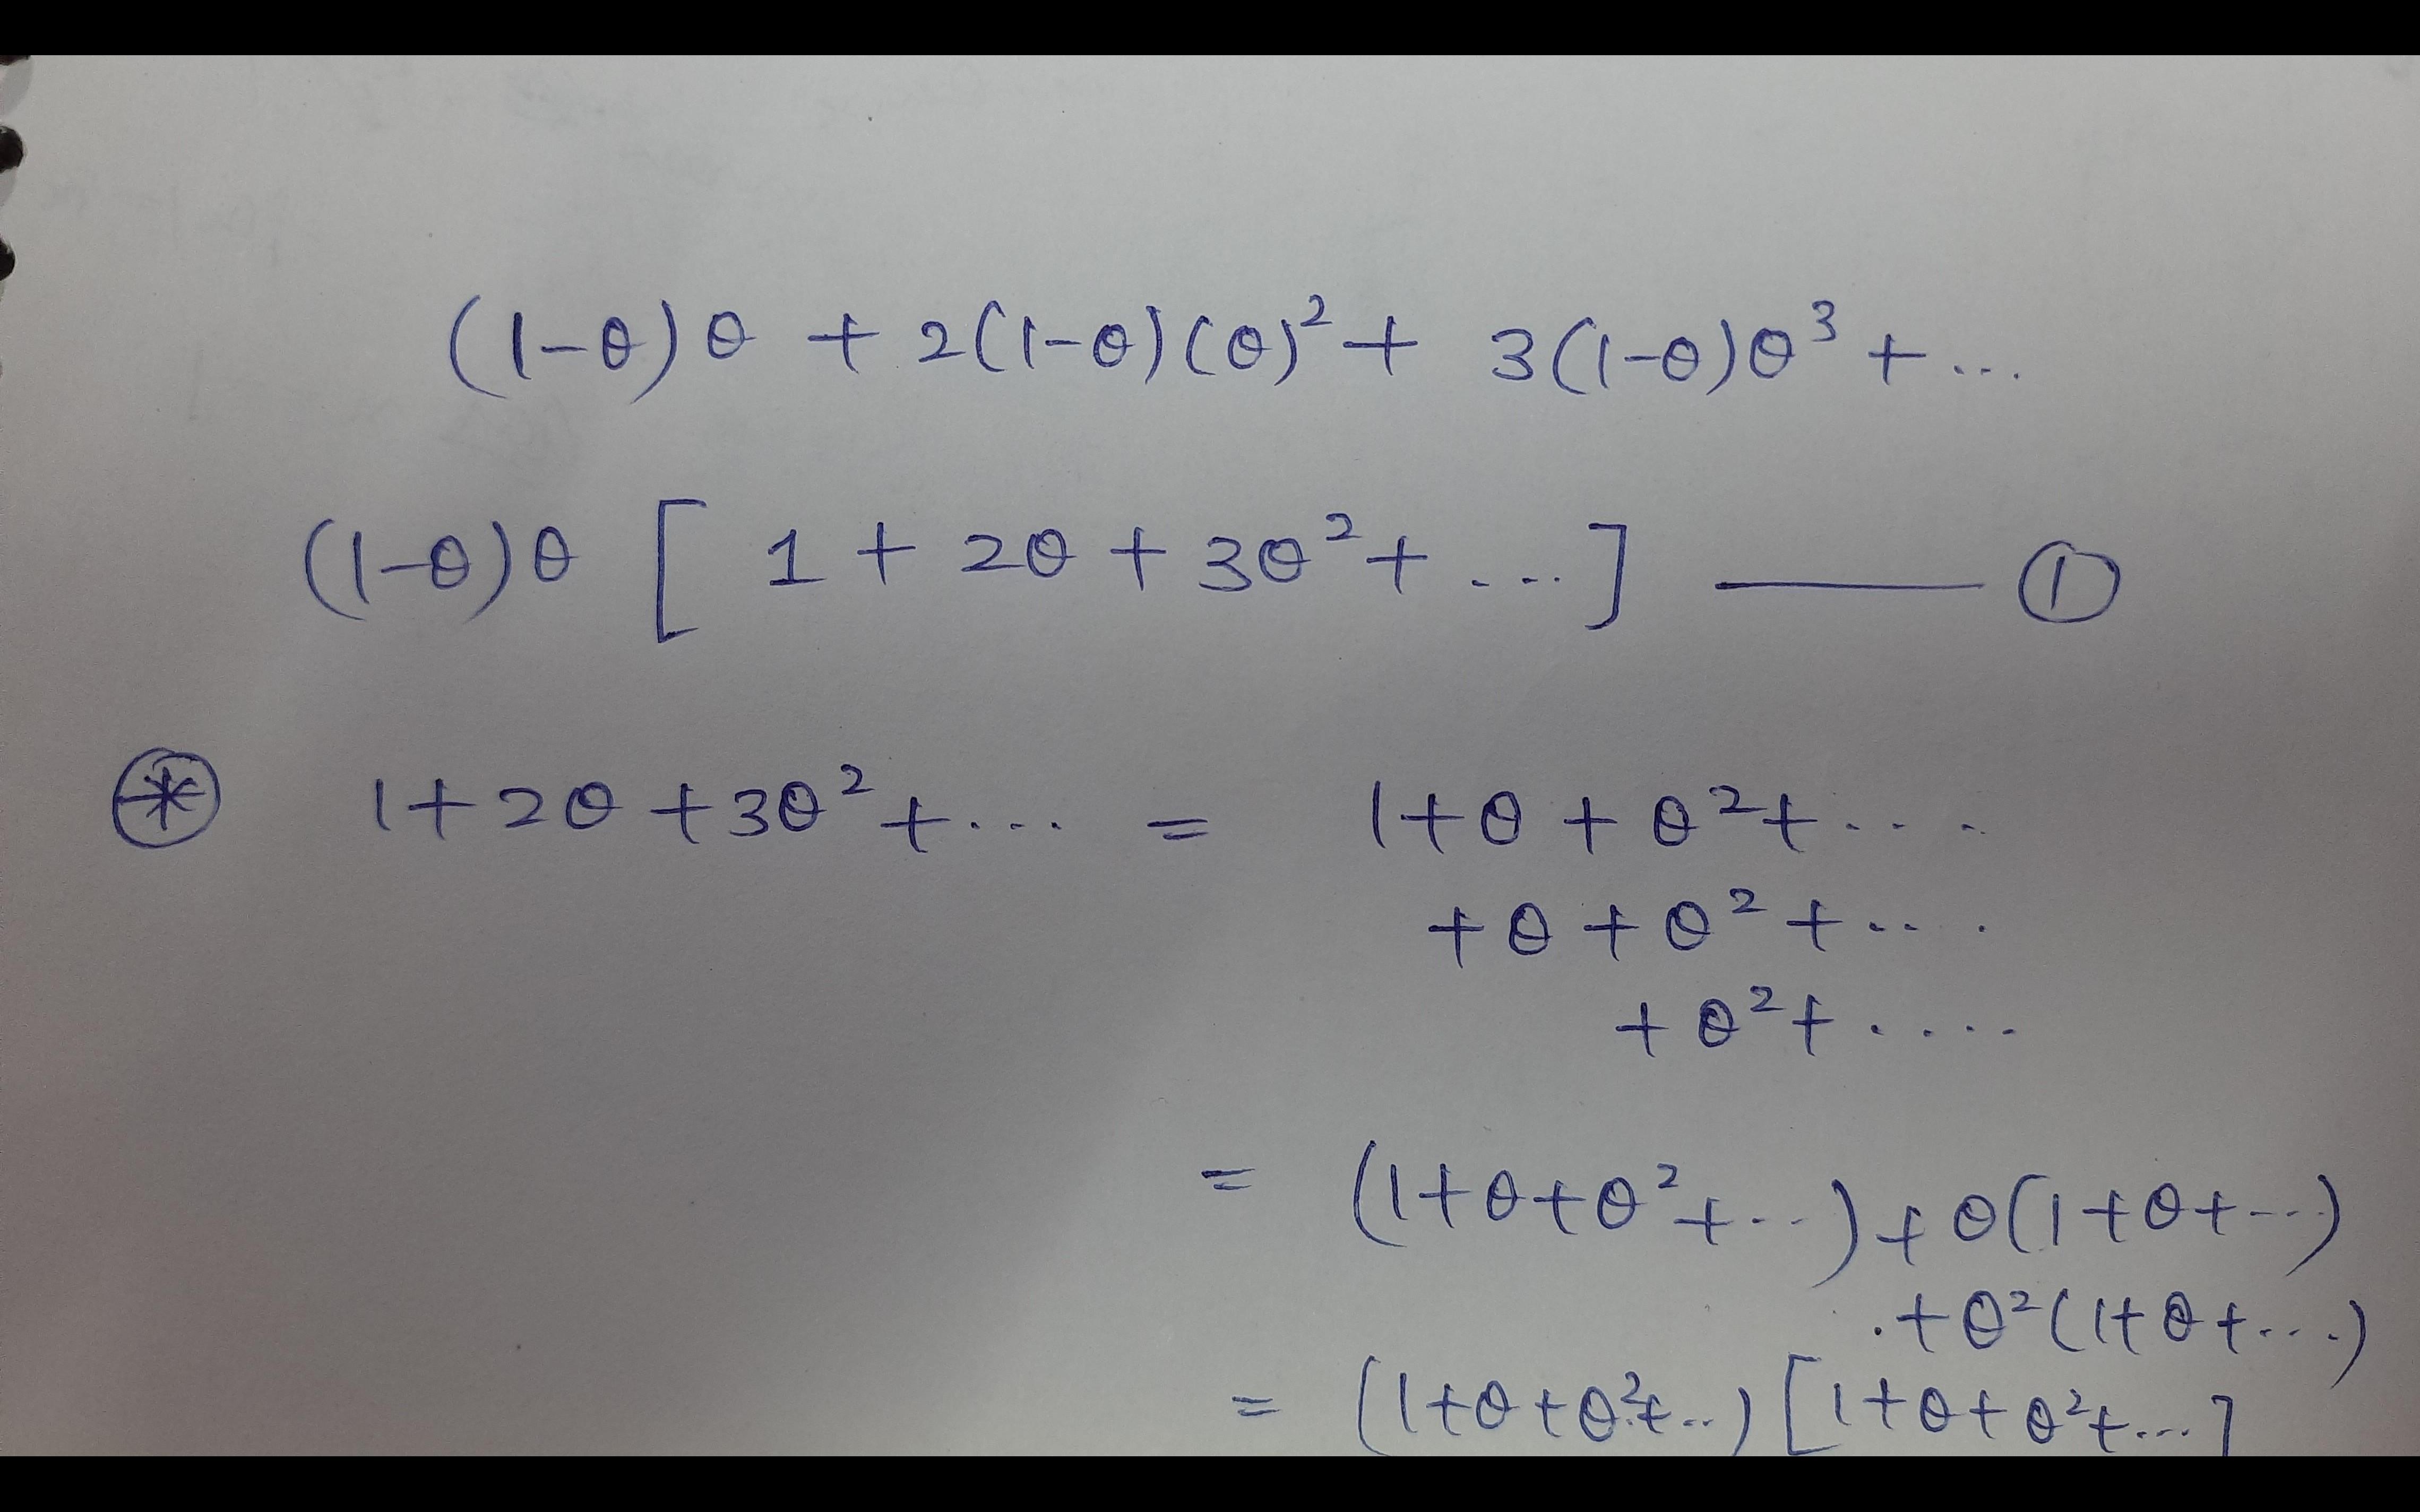 (1-θ)θ + 2(1-θ)(θ)² + 3(1-θ)θ³ + ...
(1-θ)θ [ 1 + 2θ + 3θ² + ... ] —— ①
⊛ 1 + 2θ + 3θ² + ... = 1 + θ + θ² + ....
+ θ + θ² + ...
+ θ² + .....
= (1+θ+θ²+...) + θ(1+θ+...)
.+ θ²(1+θ+...)
= (1+θ+θ²+..) [1+θ+θ²+...]